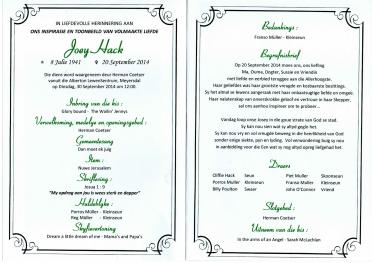 IN LIEFDEVOLLE HERINNERING AAN
ONS INSPIRASIE EN TOONBEELD VAN VOLMAAKTE LIEFDE
Joey Hack
* 8 Julie 1941 20 September 2014
Die diens word waargeneem deur Herman Coetser
vanuit die Alberton Lewensentrum, Meyersdal
op Dinsdag, 30 September 2014 om 12:00.
Inbring van die kis :
Glory bound - The Wailin' Jennys
Verwelkoming, medelye en openingsgebed :
Herman Coetser
Gemeentesang
Dan moet ek julg
Item :
Nuwe Jerusalem
Skriflesing :
Josua 1 : 9
"My opdrag aan jou is wees sterk en dapper"
Huldeblyke :
Porros Müller - Kleinseun
Reg Müller - Kleinseun
Skyfievertoning
Dream a little dream of me - Mama's and Papa's
Bedankings :
Fransa Müller - Kleinseun
Begrafnisbrief
Op 20 September 2014 moes ons, ons liefling
Ma, Ouma, Dogter, Sussie en Vriendin
met liefde en eerbied teruggee aan die Allerhoogste.
Haar geliefdes was haar grootste vreugde en kosbaarste besittings.
Sy het almal se lewens aangeraak met haar onbaatsugtige liefde en omgee.
Haar nalatenskap van onwrikbare geloof en vertroue in haar Skepper,
sal ons aanhou inspireer om te probeer...
Vandag loop onse Joey in die goue strate van God se stad.
Sy kan nou sien wat sy altyd geglo het.
Sy kan nou vry en vol vreugde beweeg in die heerlikheid van God
sonder enige siekte, pyn en lyding. Vol verwondering buig sy nou
in aanbidding voor die Een wat sy nog altyd oprég liefgehad het.
Draers
Cliffie Hack Seun Piet Muller Skoonseun
Porros Müller Kleinseun Fransa Müller Kleinseun
Billy Poulton Swaer John O'Connor Vriend
Slotgebed :
Herman Coetser
Uitneem van die kis :
In the arms of an Angel - Sarah McLachlan